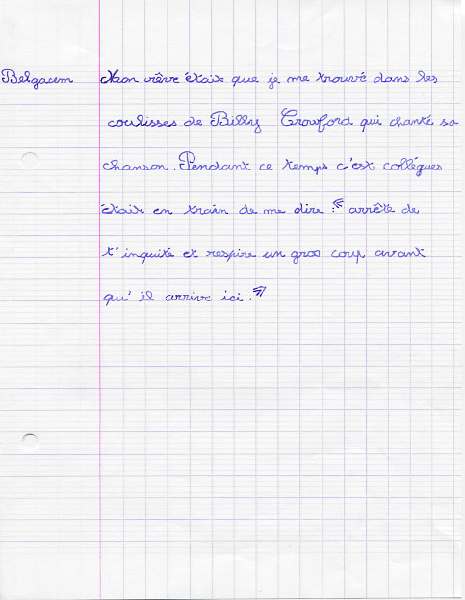 Belgacem Mon rêve était que je me trouvé dans les
coulisses de Billy Crowford qui chanté sa
chanson. Pendant ce temps c'est collégues
était en train de me dire : « arrête de
t'inquité et respire un gros coup avant
qu'il arrive ici. »